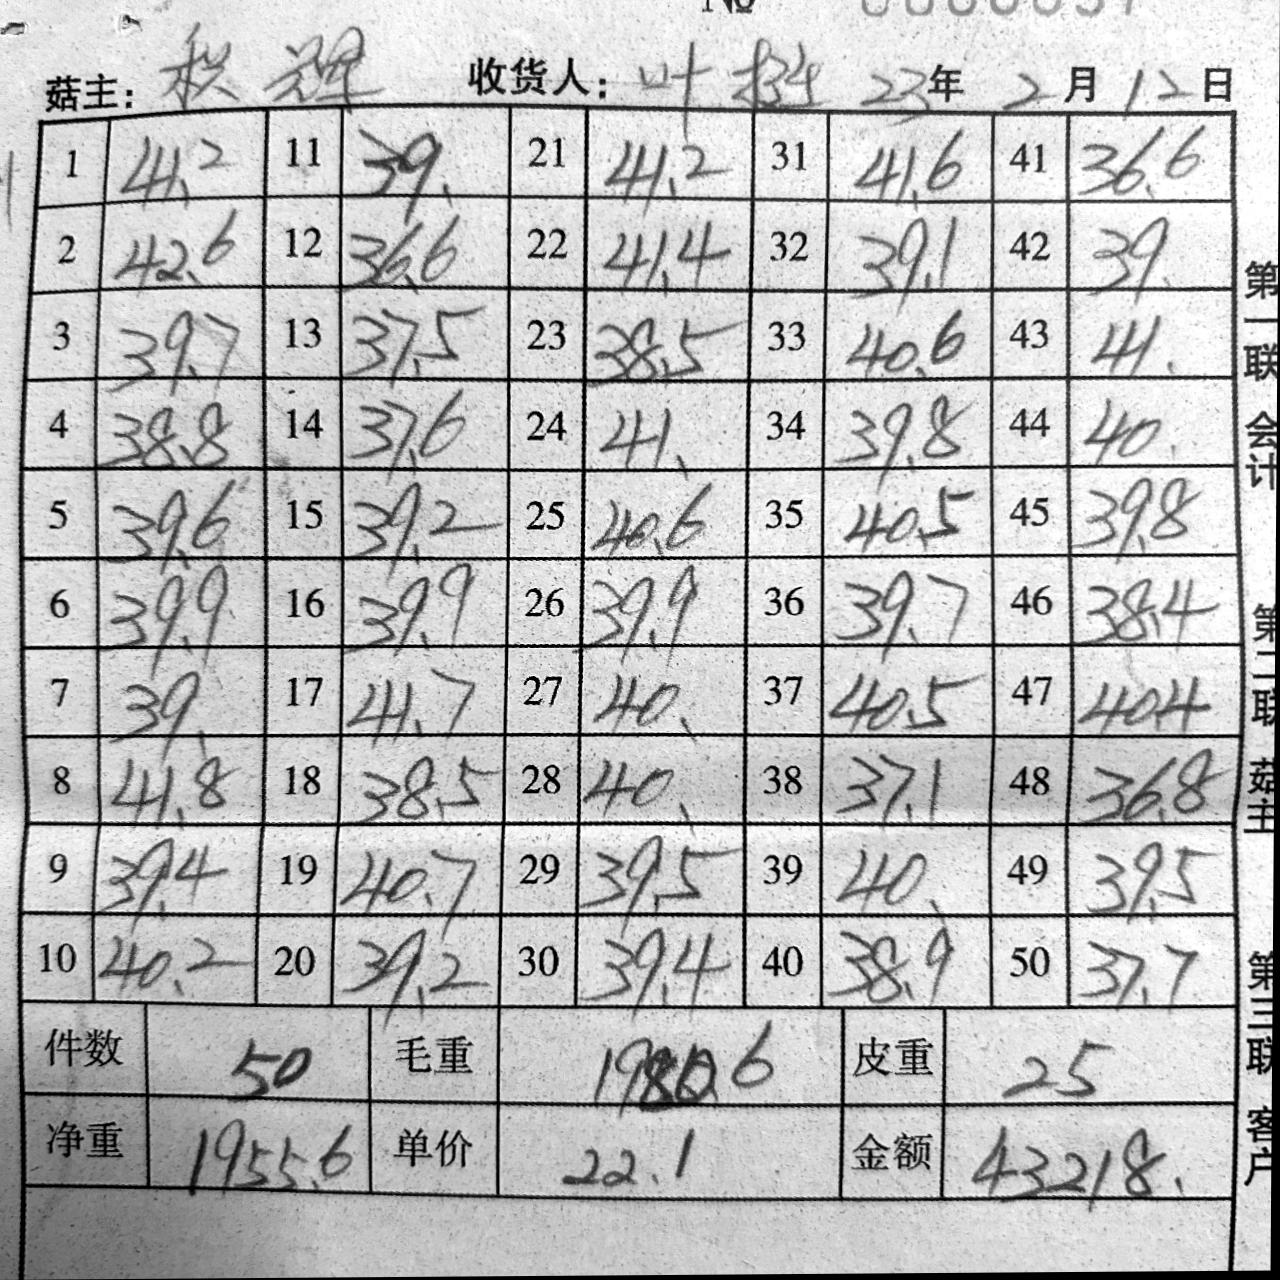 № 0000037
菇主: 秋辉 收货人: 叶 23年 2月 12日
1 41.2 11 39. 21 41.2 31 41.6 41 36.6
2 42.6 12 36.6 22 41.4 32 39.1 42 39.
3 39.7 13 37.5 23 38.5 33 40.6 43 41.
4 38.8 14 37.6 24 41. 34 39.8 44 40.
5 39.6 15 39.2 25 40.6 35 40.5 45 39.8
6 39.9 16 39.9 26 39.9 36 39.7 46 38.4
7 39. 17 41.7 27 40. 37 40.5 47 40.4
8 41.8 18 38.5 28 40. 38 37.1 48 36.8
9 39.4 19 40.7 29 39.5 39 40. 49 39.5
10 40.2 20 39.2 30 39.4 40 38.9 50 37.7
件数 50 毛重 1980.6 皮重 25
净重 1955.6 单价 22.1 金额 43218.
第一联 会计
第二联 菇主
第三联 客户